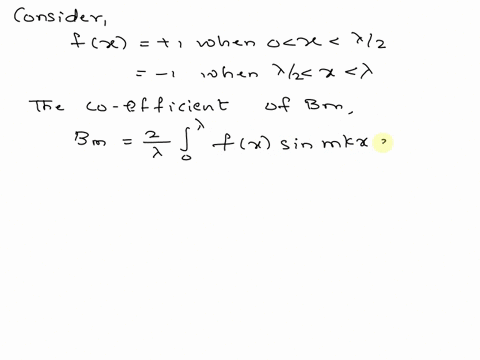 Consider,
f(x) = +1 when 0<x<λ/2
= -1 when λ/2<x<λ
The co-efficient of Bm,
Bm = 2/λ ∫₀^λ f(x) sin mkx